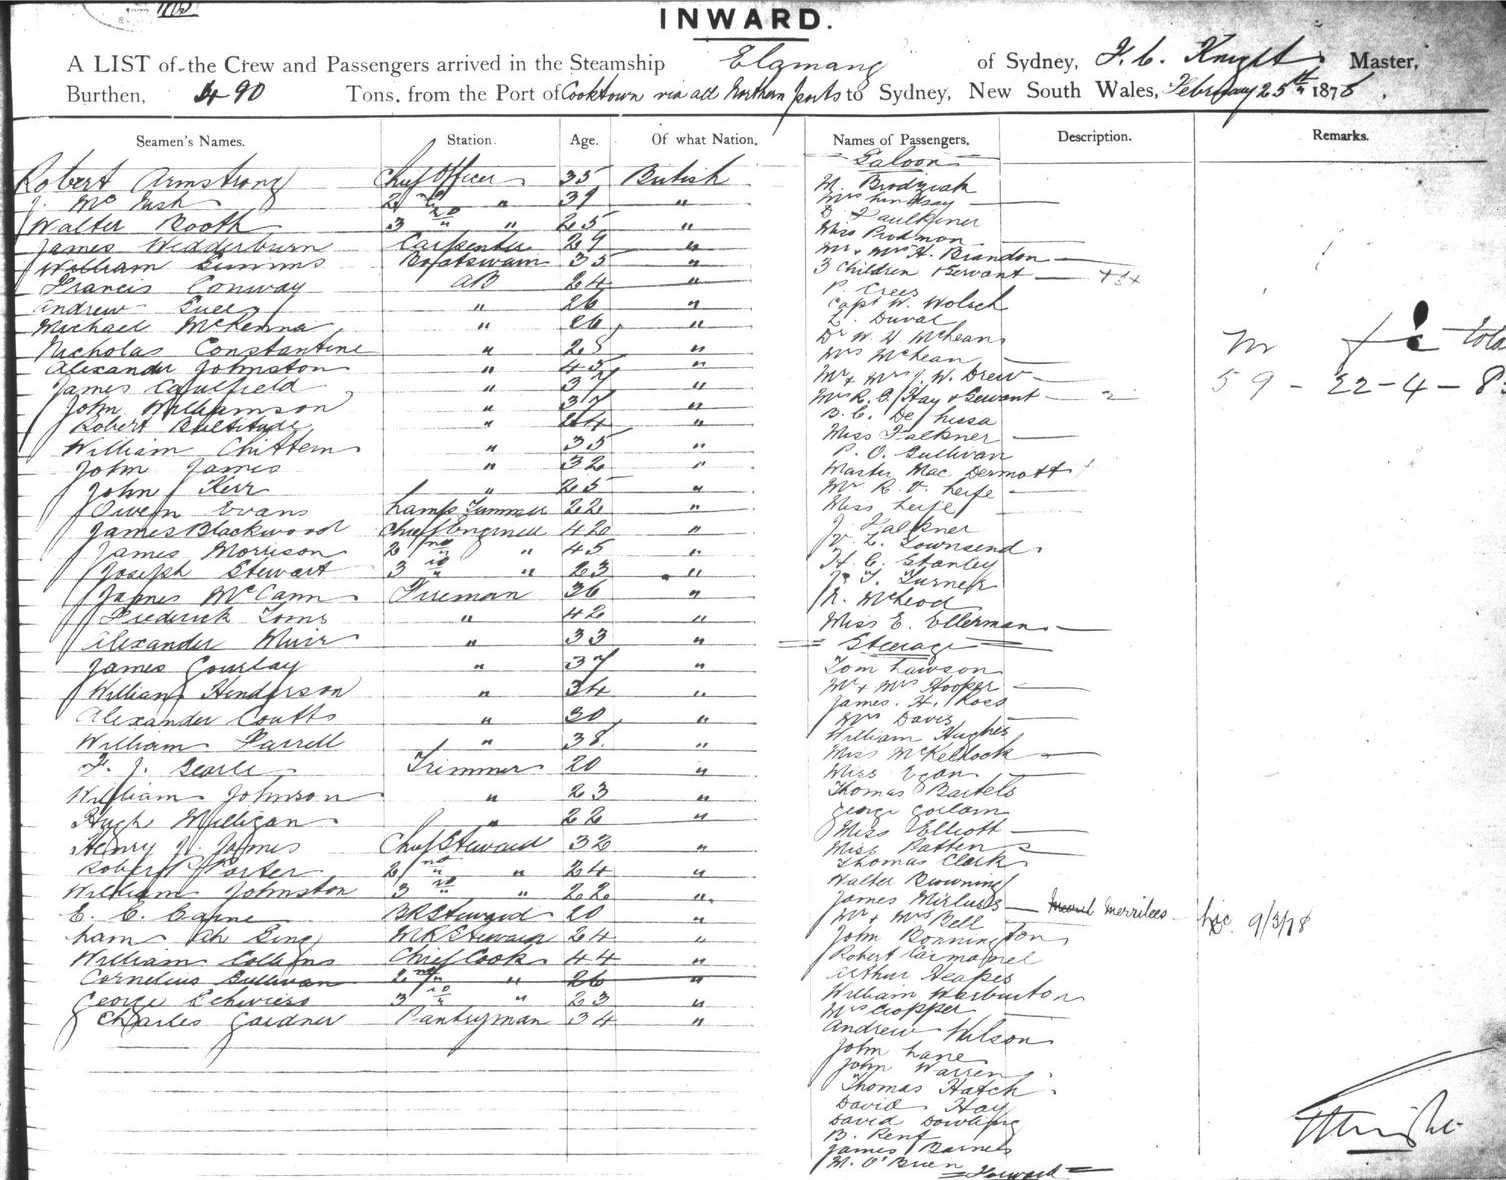 INWARD.
A LIST of the Crew and Passengers arrived in the Steamship Elamang of Sydney, F. C. Knight Master,
Burthen, 490 Tons, from the Port of Cooktown via all Northern ports to Sydney, New South Wales, February 25th 1878.
Seamen's Names. Station. Age. Of what Nation. Names of Passengers. Description. Remarks.
Robert Armstrong Chief Officer 35 British
J. 2nd " " "
Walter Booth 3rd " " 25 "
James Wedderburn Carpenter 29 "
William Simms Boatswain 35 "
Francis Conway AB 24 "
Andrew " 26 "
Michael McKenna " 26 "
Nicholas Constantine " "
Alexander Johnston " 45 "
James Caulfield " 37 "
John Williamson " 37 "
Robert Bultitude " 44 "
William Chittem " 35 "
John James " 32 "
John Kerr " 25 "
Owen Evans Lamp Trimmer 22 "
James Blackwood Chief Engineer 42 "
James Morrison 2nd " " 45 "
Joseph Stewart 3rd " " 23 "
James McCann Fireman 36 "
Frederick Toms " 42 "
Alexander Muir " 33 "
James Gourlay " 37 "
William Henderson " 34 "
Alexander Coutts " 30 "
William Farrell " 38 "
F. J. Searle Trimmer 20 "
William Johnson " 23 "
Hugh Milligan " 22 "
Henry J. James Chief Steward 32 "
Robert Porter 2nd " " 24 "
William Johnston 3rd " " 22 "
E. C. Carne BR Steward 20 "
Ah Sing MR Steward 24 "
William Collins Chief Cook 44 "
Cornelius Sullivan 2nd " " 26 "
George 3rd " " 23 "
Charles Gardner Pantryman 34 "
Saloon
M. Brodziak
Mrs Lindsay
Faulkner
Miss
Mr + Mrs H. Brandon
3 Children + Servant
P. Crees
Capt W. Wolsch
Duval
Dr W. H. McLean
Mrs McLean
Mr + Mrs J. W. Drew
Mrs R. C. Hay + Servant
B. C. De Lissa
Miss Falkner
P. O. Sullivan
Master Mac Dermott
Mr R. Leife
Miss Leife
J. Falkner
Townsend
H. C. Stanley
Turner
McLeod
Miss E. Ellerman
Steerage
Tom Lawson
Mr + Mrs Hooper
James H. Ross
Mrs Davis
William Hughes
Miss McKellock
Miss Egan
Thomas Bartels
George
Miss Elliott
Miss Patten
Thomas Clark
Walter Browning
James Merrilees Lic. 9/3/78
Mr + Mrs Bell
John Bonnington
Robert Carmael
Arthur Heapes
William Warburton
Mrs Cropper
Andrew Wilson
John Lane
John Warren
Thomas Hatch
David Hay
David Dowling
B. Kent
James Barnes
M. O'Brien
Forward
M f c total
59 - 22 - 4 - 85